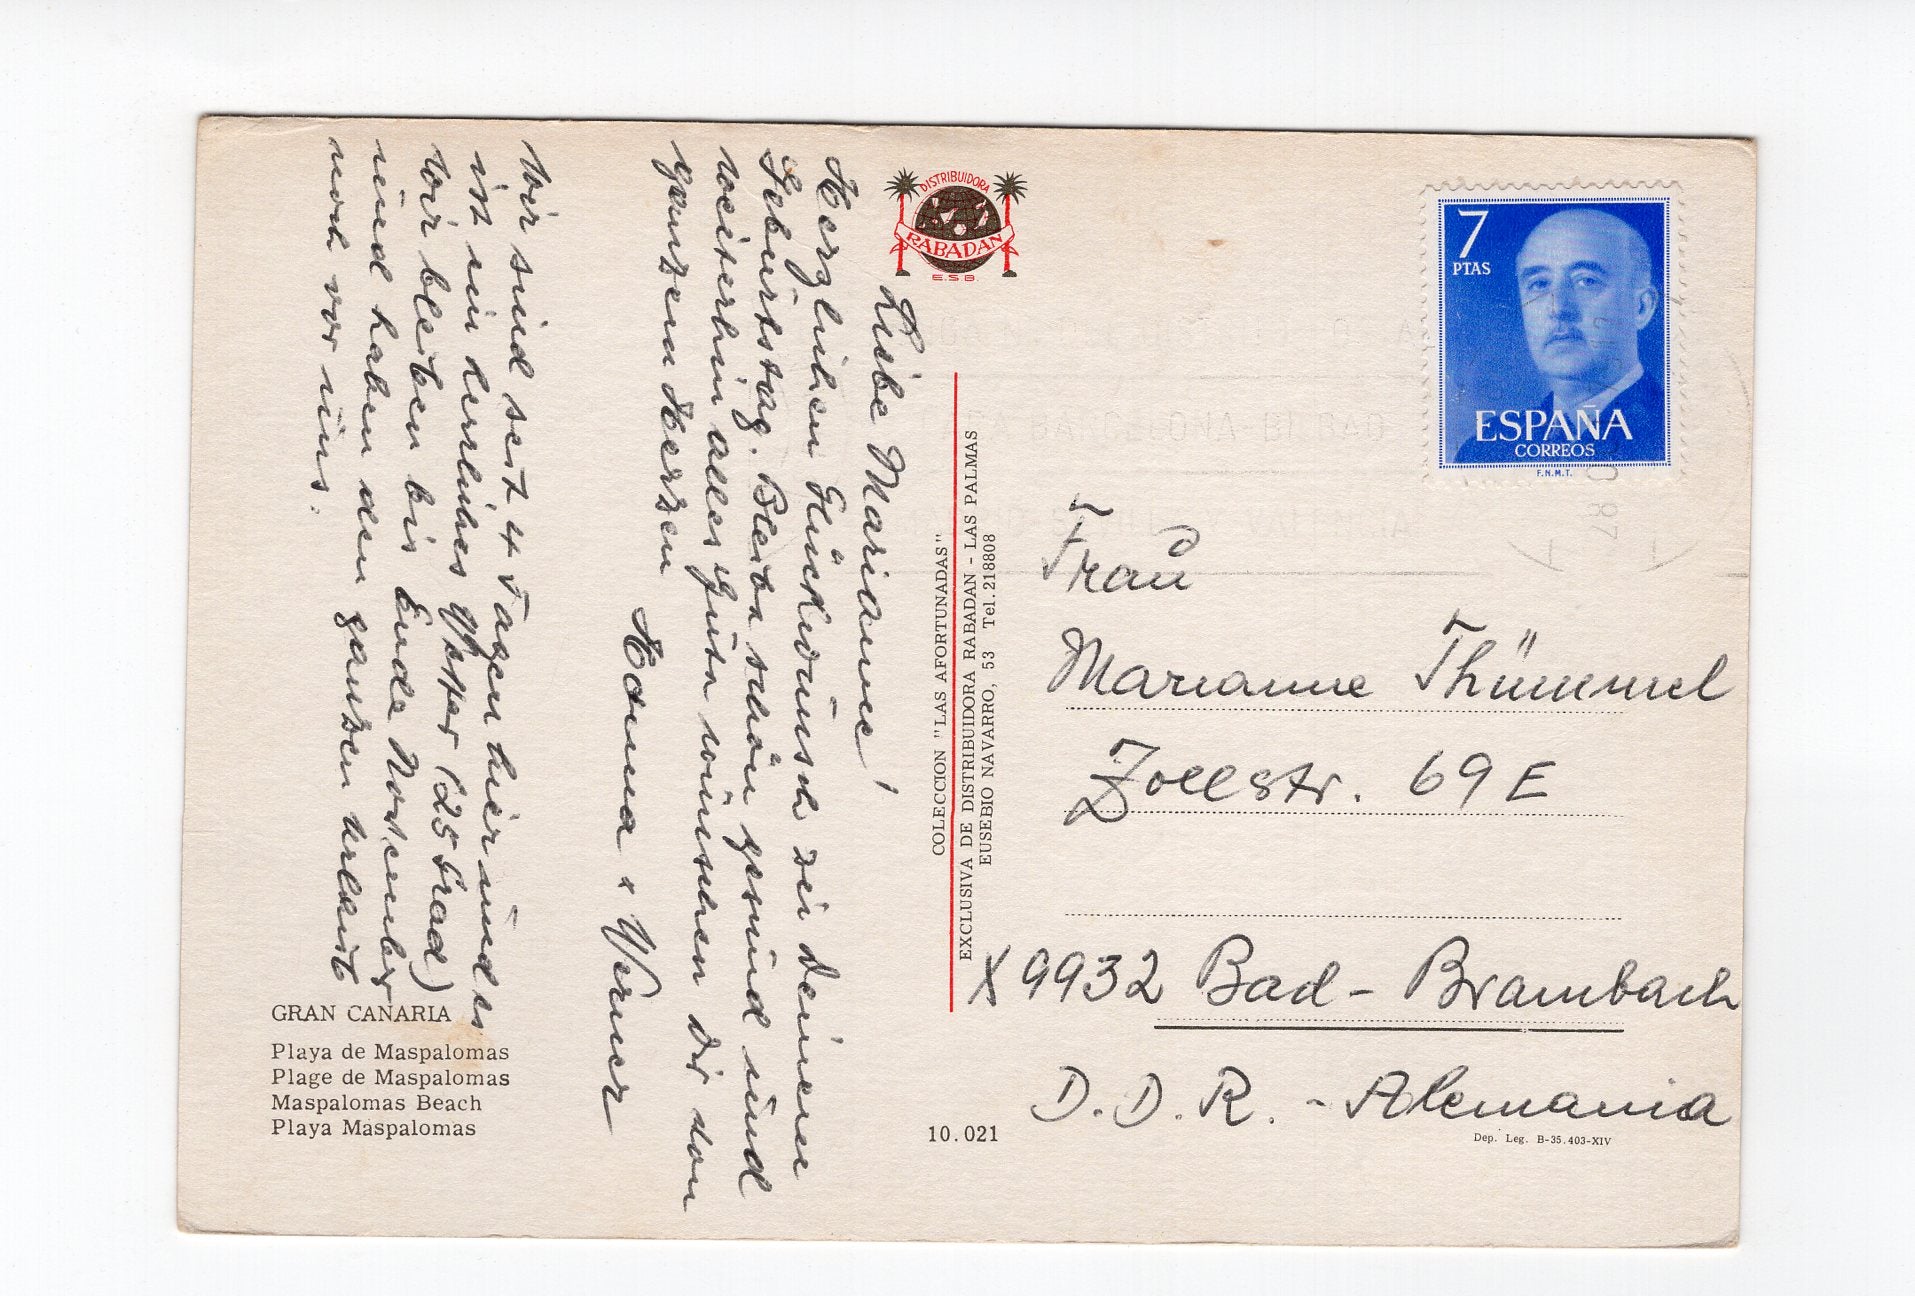 Liebe Marianne!
Herzlichen Glückwunsch zu Deinem
Geburtstag. Bleibe schön gesund und
weiterhin alles Gute wünschen Dir von
ganzem Herzen
Hanna + Werner
Wir sind seit 4 Tagen hier und es
ist ein herrliches Wetter (25 Grad)
Wir bleiben bis Ende November
und haben den ganzen Urlaub
noch vor uns.
GRAN CANARIA
Playa de Maspalomas
Plage de Maspalomas
Maspalomas Beach
Playa Maspalomas
DISTRIBUIDORA
RABADAN
E.S.B.
COLECCION "LAS AFORTUNADAS"
EXCLUSIVA DE DISTRIBUIDORA RABADAN - LAS PALMAS
EUSEBIO NAVARRO, 53 Tel. 218808
10.021
7
PTAS
ESPAÑA
CORREOS
F.N.M.T.
BARCELONA-BILBAO
Frau
Marianne Thümmel
Zollstr. 69 E
X 9932 Bad-Brambach
D.D.R. - Alemania
Dep. Leg. B-35.403-XIV